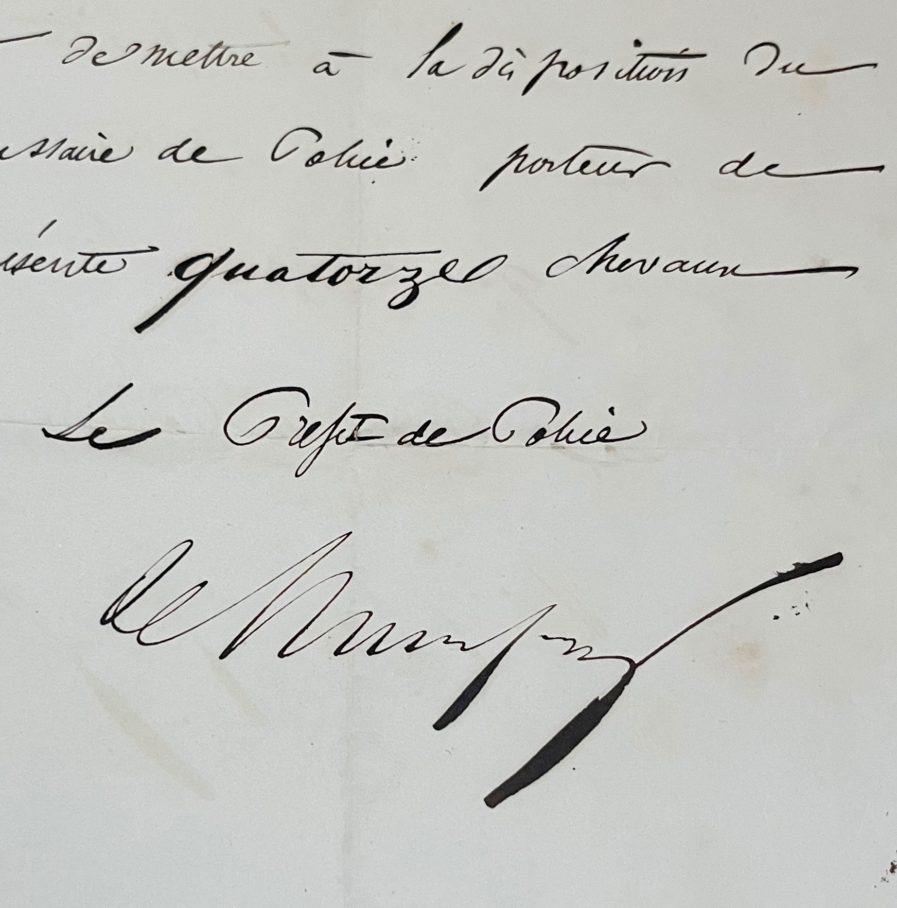 de mettre à la disposition du
ssaire de Police porteur de
ésente quatorze chevaux
Le Préfet de Police
de Maupas